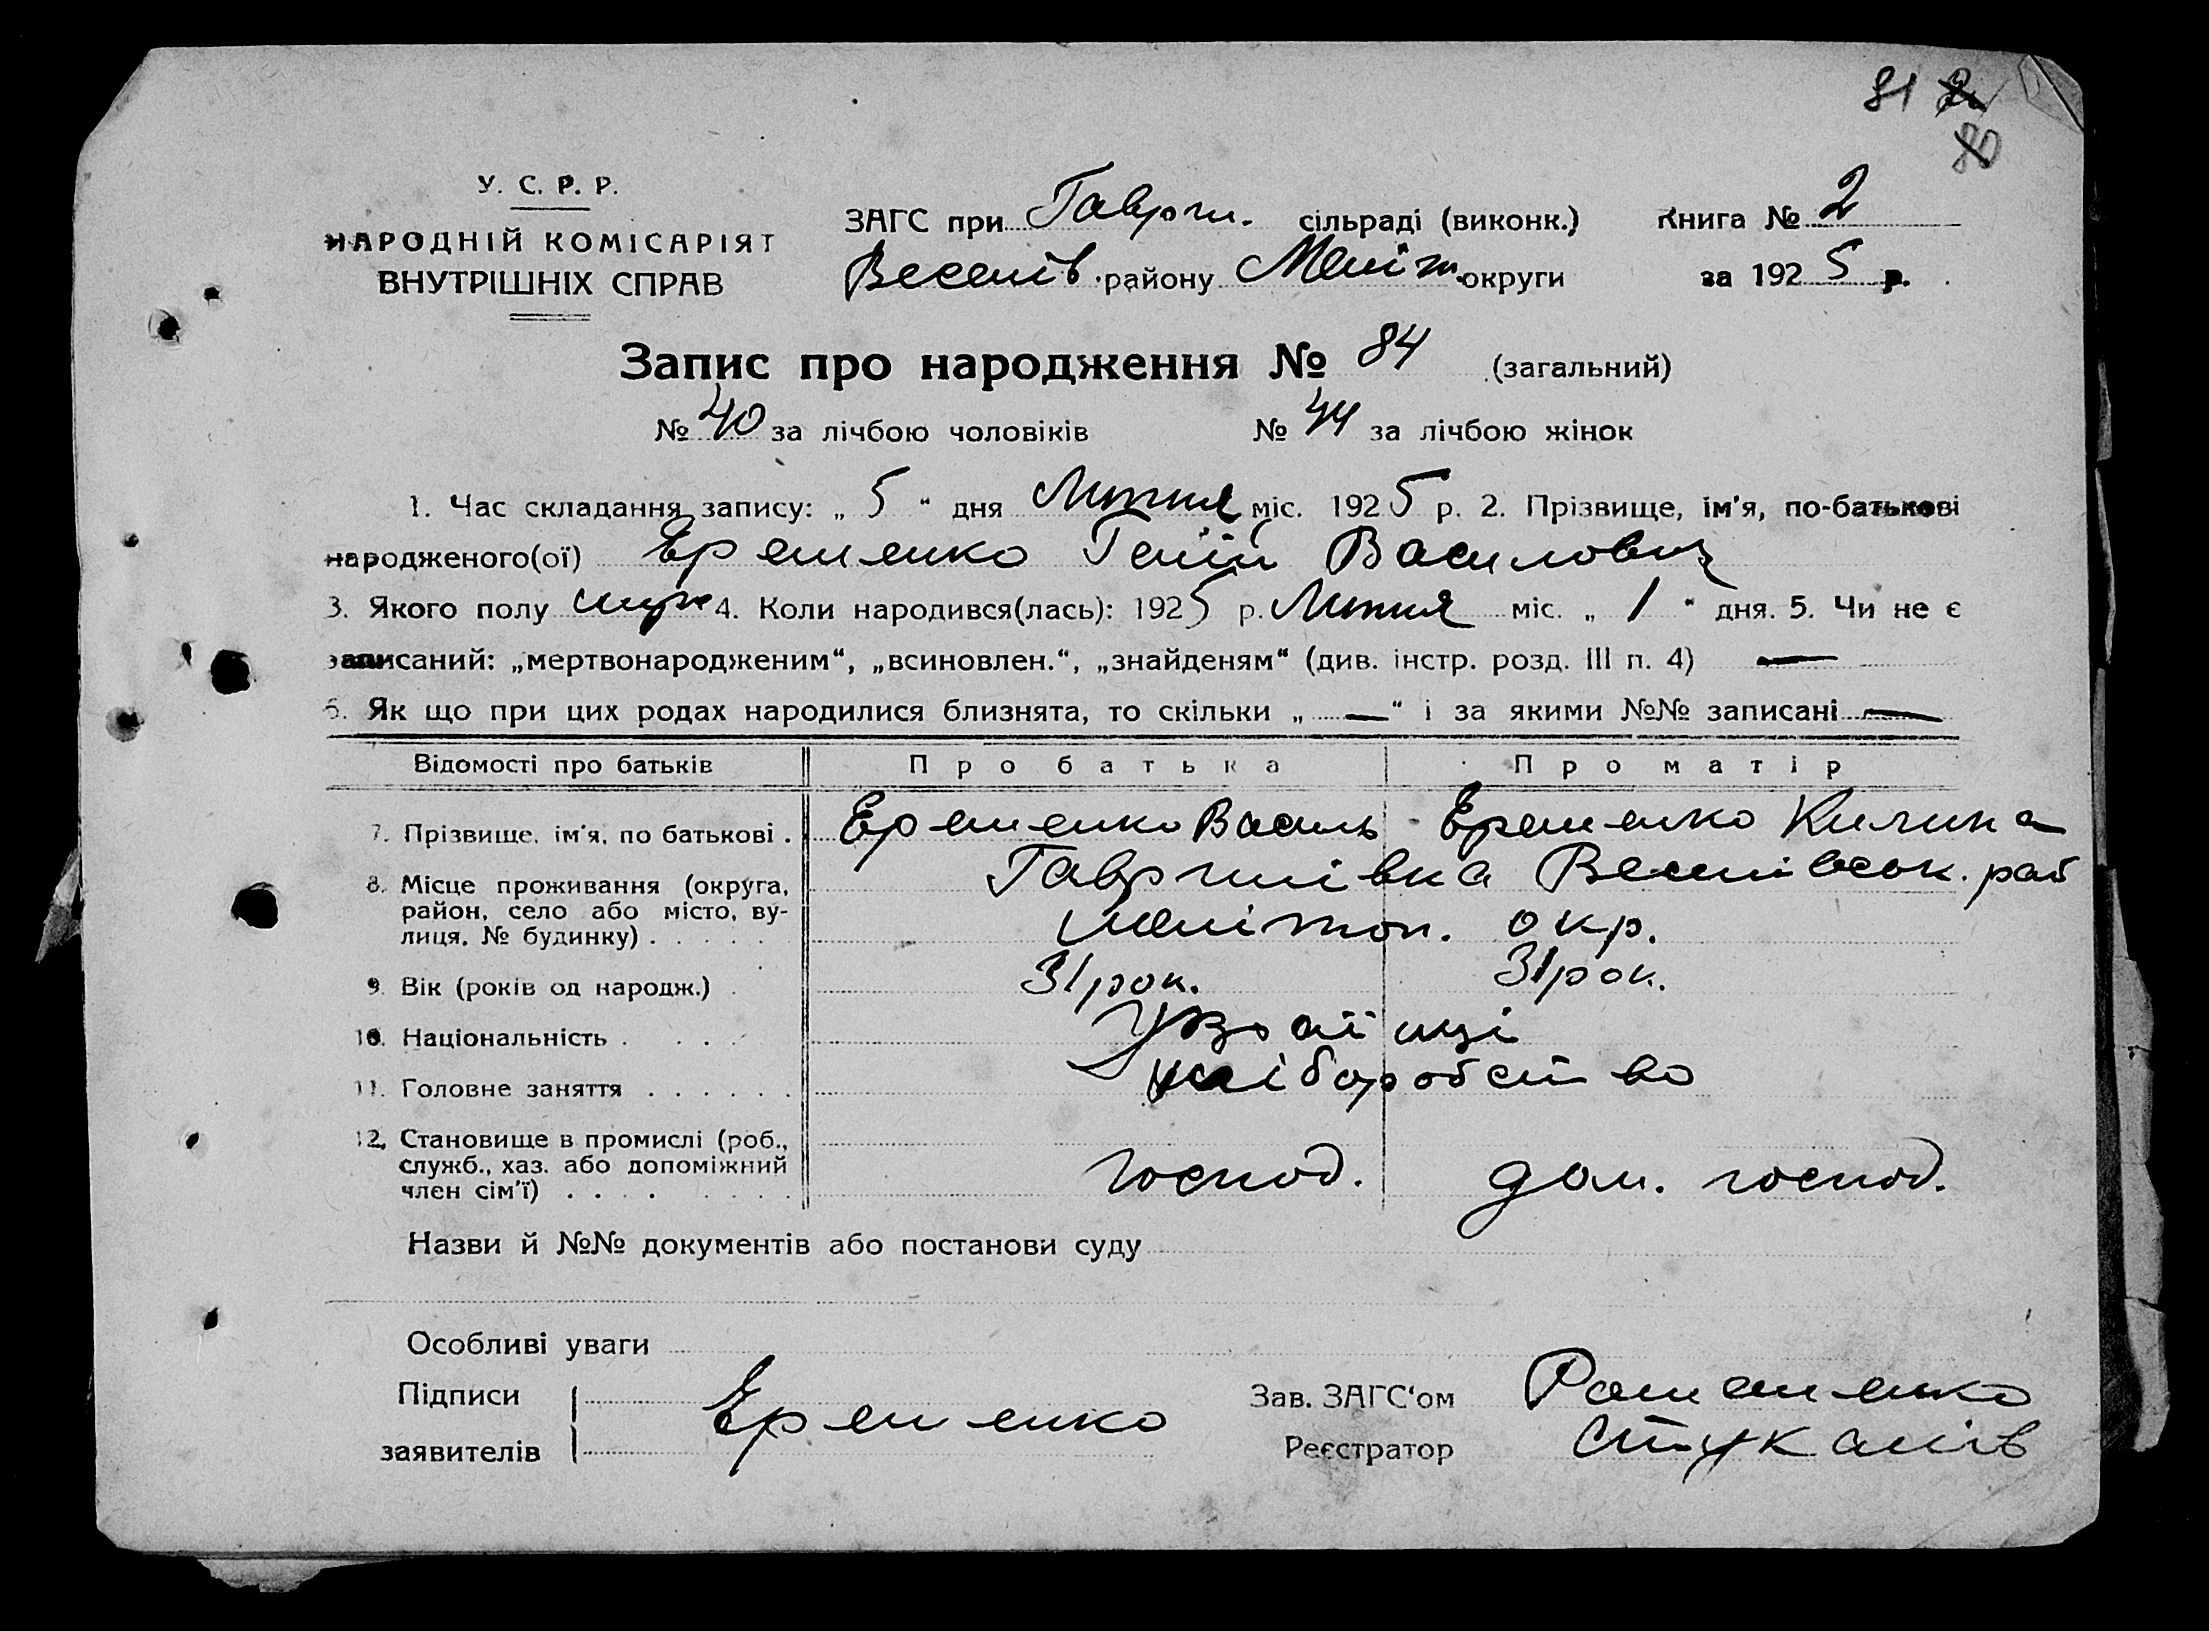 81
80
У. С. Р. Р.
НАРОДНІЙ КОМІСАРІЯТ
ВНУТРІШНІХ СПРАВ
ЗАГС при Гаврил. сільраді (виконк.) Книга № 2
Веселів. району Меліт. округи за 1925 р.
Запис про народження № 84 (загальний)
№ 40 за лічбою чоловіків № 44 за лічбою жінок
1. Час складання запису: „ 5 “ дня Липня міс. 1925 р. 2. Прізвище, ім'я, по-батькові
народженого(ої) Еременко Геній Василович
3. Якого полу муж 4. Коли народився(лась): 1925 р. Липня міс. „ 1 “ дня. 5. Чи не є
записаний: „мертвонародженим“, „всиновлен.“, „знайденям“ (див. інстр. розд. III п. 4) —
6. Як що при цих родах народилися близнята, то скільки „ — “ і за якими №№ записані —
Відомості про батьків Про батька Про матір
7. Прізвище, ім'я, по батькові . Еременко Василь Еременко Килина
8. Місце проживання (округа, Гаврилівка Веселівськ. рай
район, село або місто, ву-
лиця, № будинку) . . . . . Мелітоп. окр.
9. Вік (років од народж.) . 31 рок. 31 рок.
10. Національність . . . . Українці
11. Головне заняття . . . . . . хліборобство
12. Становище в промислі (роб.,
служб., хаз. або допоміжний
член сім'ї) . . . . . . . . господ. дом. господ.
Назви й №№ документів або постанови суду
Особливі уваги
Підписи
заявителів Еременко
Зав. ЗАГС'ом Романенко
Реєстратор Стукалів